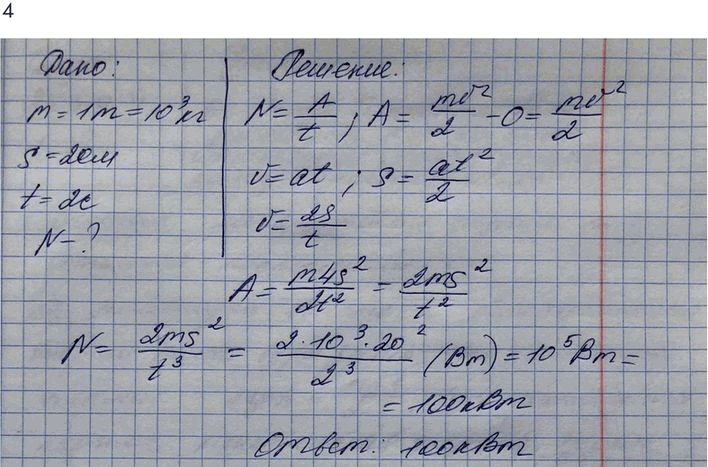 4
Дано:
m = 1т = 10³кг
S = 20м
t = 2с
N - ?
Решение:
N = A/t ; A = mv²/2 - 0 = mv²/2
v = at ; S = at²/2
v = 2S/t
A = m4s²/2t² = 2ms²/t²
N = 2ms²/t³ = 2·10³·20²/2³ (Вт) = 10⁵Вт =
= 100кВт
Ответ: 100кВт